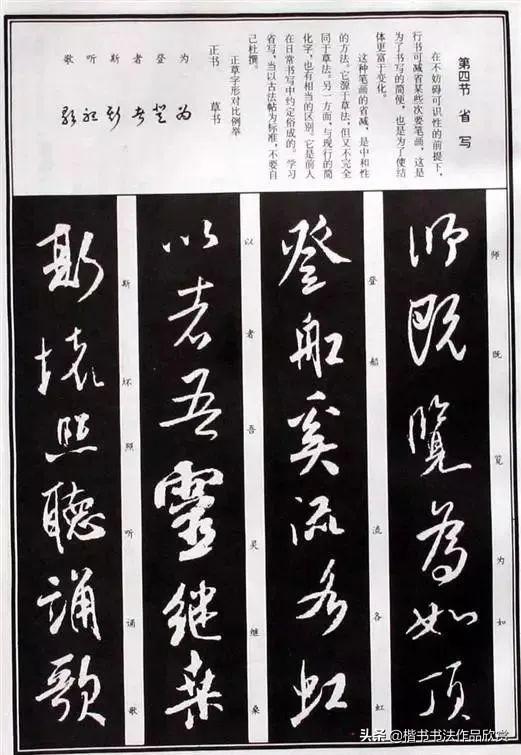 第四节 省写
在不妨碍可识性的前提下，
行书可减省某些次要笔画，这是
为了书写的简便，也是为了使结
体更富于变化。
这种笔画的省减，是中和性
的方法。它源于草法，但又不完全
同于草法。另一方面，与现行的简
化字，也有相当的区别。它是前人
在日常书写中约定俗成的。学习
省写，当以古法帖为标准，不要自
己杜撰。
正草字形对比例举
正书 草书
为 为
登 登
者 者
斯 斯
听 听
歌 歌
师 既 览 为 如
師既覽為如頂
登 船 流 各 虹
登船奚流各虹
以 者 吾 吴 继 桑
以者吾靈繼桑
斯 坏 照 听 诵 歌
斯壞照聽誦歌
头条 @楷书书法作品欣赏